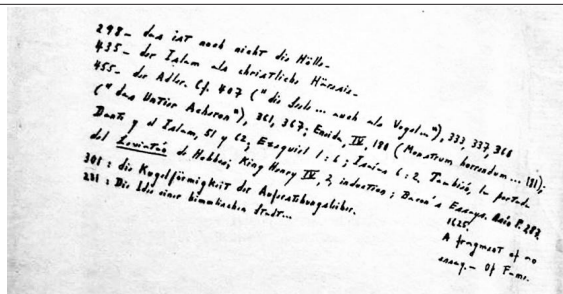 298 - das ist noch nicht die Hölle -
435 - der Islam als christliche Häresie -
455 - der Adler. Cf. 407 ("die Seele ... auch als Vogel..."), 333, 337, 360
("das Untier Acheron"), 361, 367; Eneida, IV, 180 (Monstrum horrendum... 181);
Dante y el Islam, 51 y 62; Ezequiel 1:6; Isaías 6:2. También, la portada
del Leviatán de Hobbes; King Henry IV, 2, induction; Bacon's Essays. P. 287,
301: die Kugelförmigkeit der Auferstehungsleiber.
231: Die Idee einer himmlischen Stadt...
1625.
A fragment of an
essay. - Of Fame.